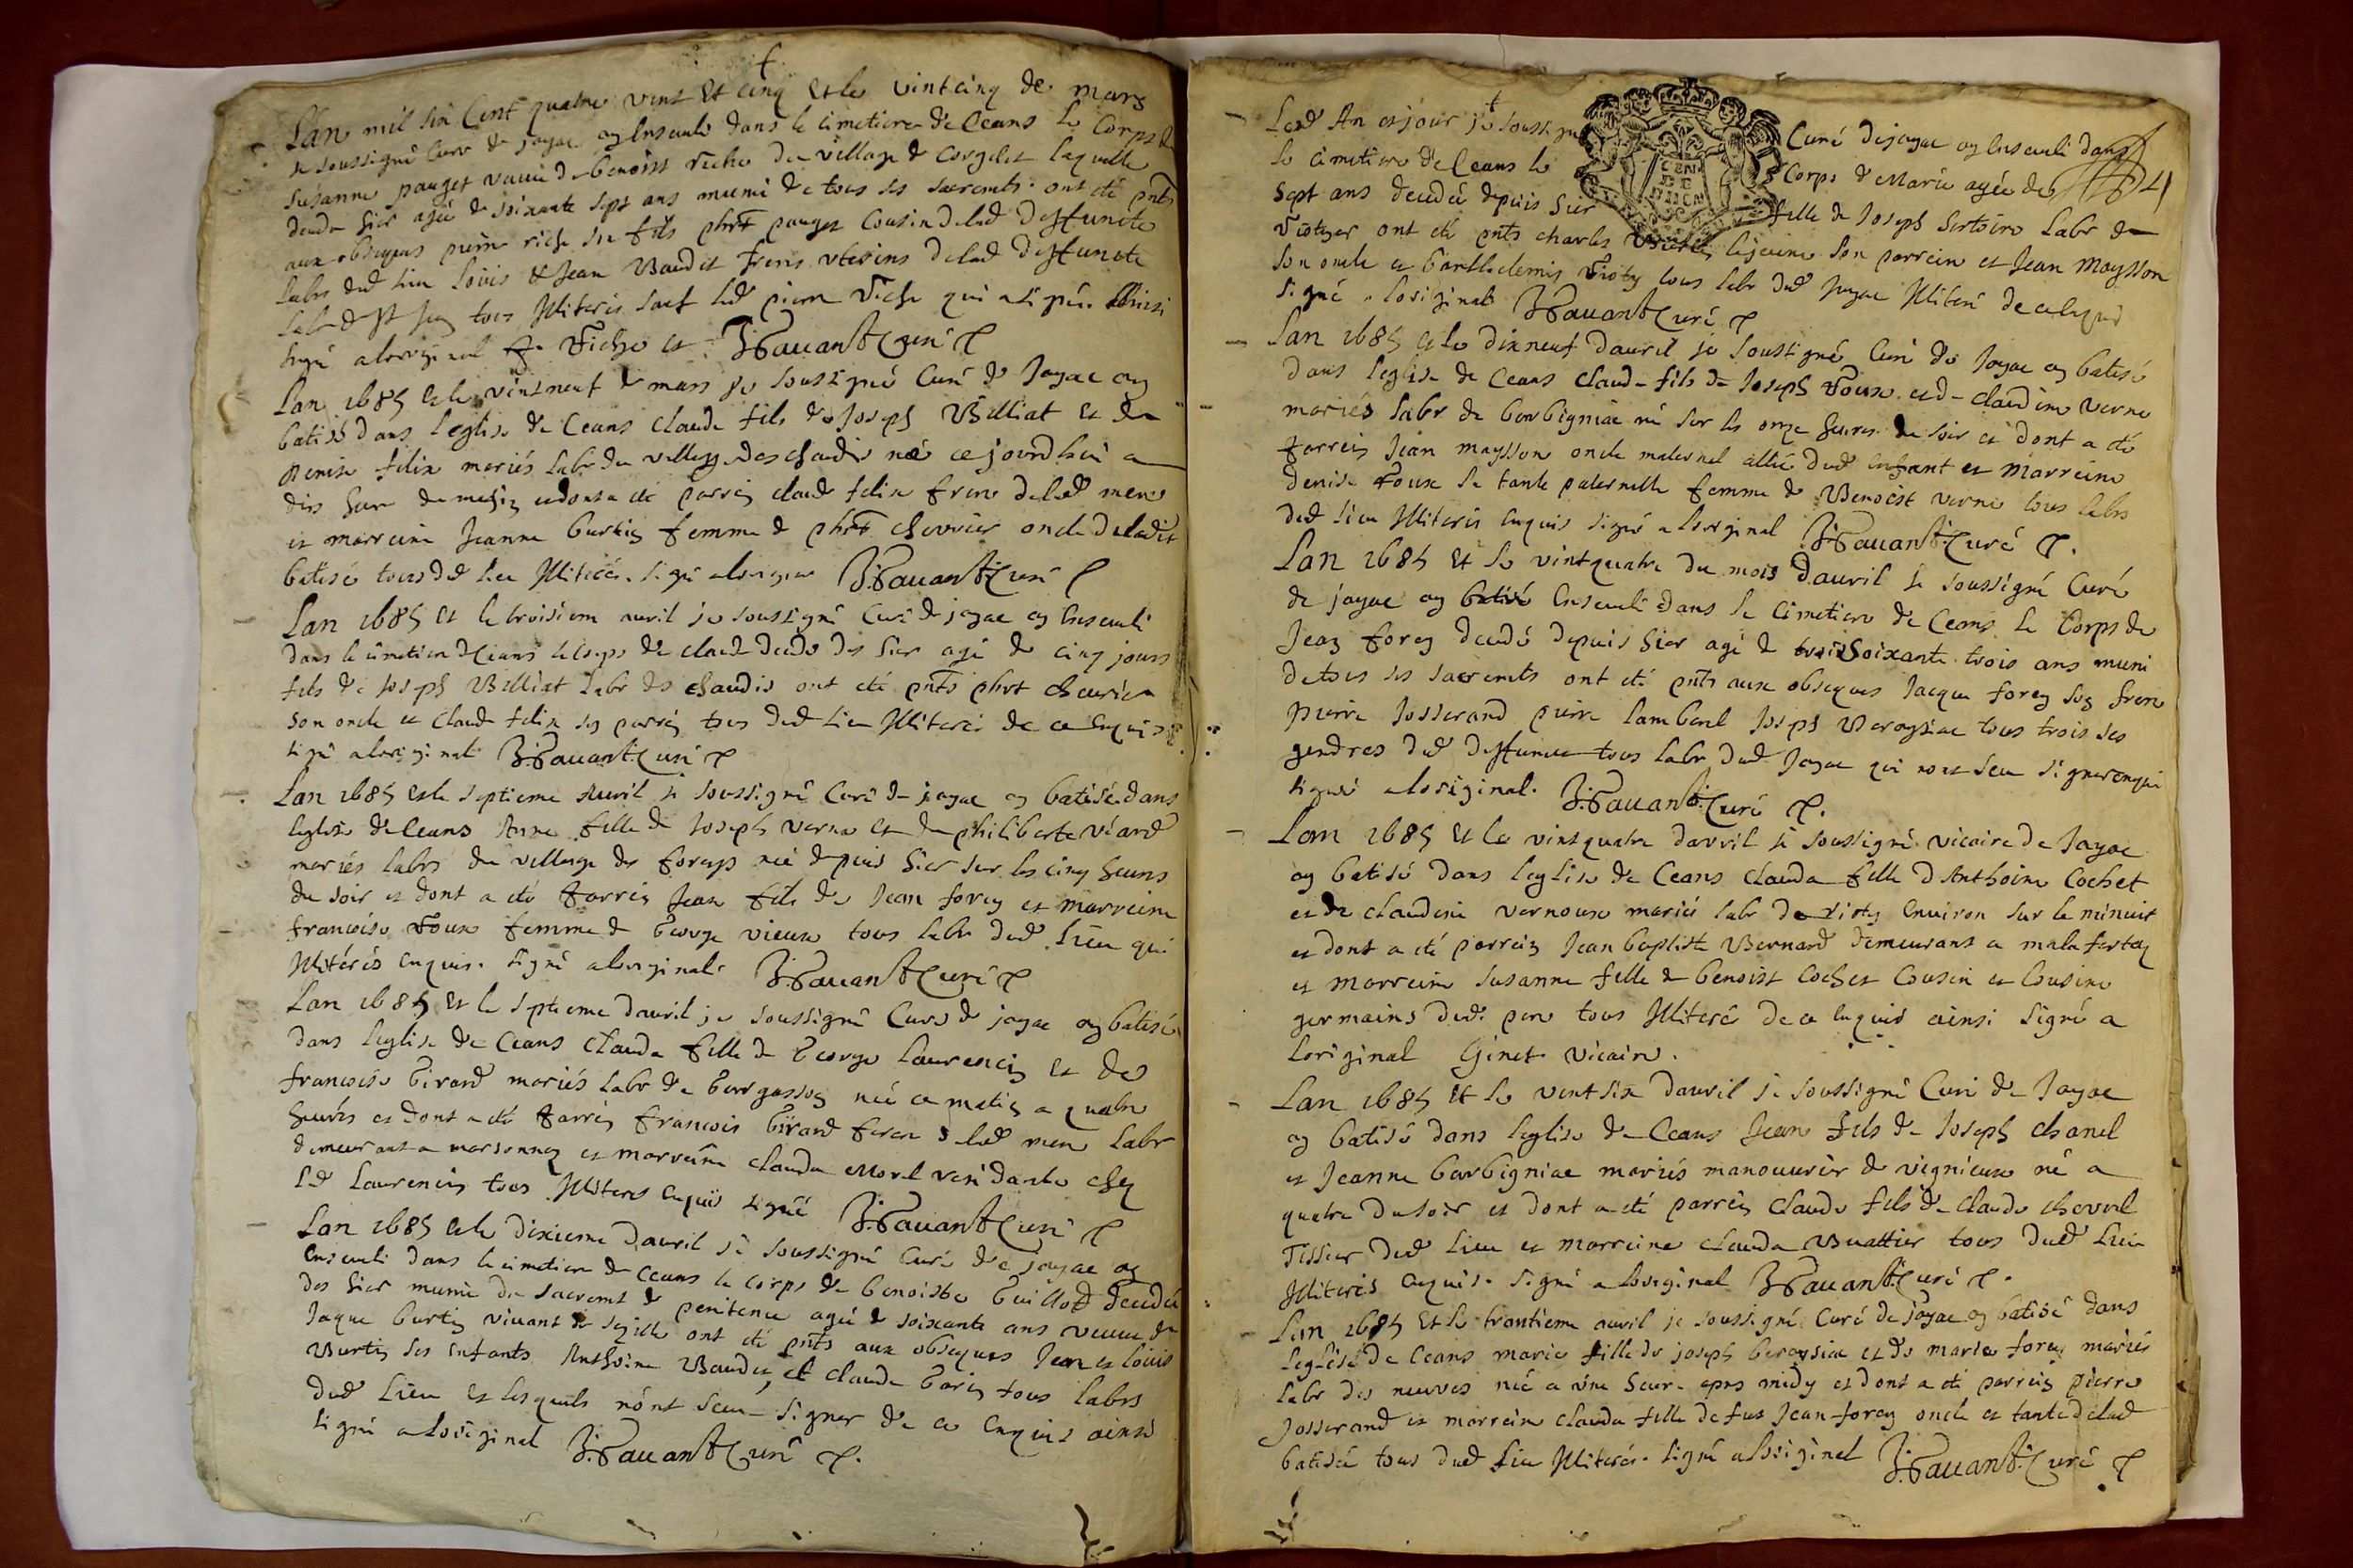 Lan mil six Cent quatre vint et cinq et le vintcinq de mars
Je soussigné Curé de jayac ay enseveli dans le cimetiere de Ceans le Corps de
Susanne pauget veuve de benoist riche du village de laquelle
deceda hier agée de soixante sept ans munie de tous ses sacremts ont été pnts
aux obseques pierre riche son fils phrt pauget Cousin de lad deffuncte
labrs dud lieu Louis et Jean Baudet freres uterins de lad deffuncte
tous Illiterés sauf led pierre riche qui a signé. Ainsi
signé a loriginal P. Riche et J. Pavant Curé
Lan 1685 et le vintneuf de mars je soussigné Curé de Jayac ay
batisé dans leglise de Ceans Claude fils de Joseph Billiat et de
Denise felix mariés labr du village des chaudis né ce jourdhui a
dix heure du matin et dont a été parrin claude felix frere de lad mere
et marreine Jeanne burtin femme de phrt chevrier oncle dudit
batisé tous dud lieu Illiterés. Signé a loriginal J. Pavant Curé
Lan 1685 et le troisiem avril je soussigné Curé de jayac ay enseveli
dans le cimetiere de Ceans le corps de claude decedé des hier agé de cinq jours
fils de Joseph Billiat labr des chaudis ont été pnts phrt chevrier
son oncle et claude felix son parrin tous dud lieu Illiterés de ce enquis
signé a loriginal J. Pavant Curé
Lan 1685 et le septieme Avril je soussigné Curé de jayac ay batisé dans
leglise de Ceans Anne fille de Joseph verne et de philiberte véard
mariés labrs du village des foreys née depuis hier sur les cinq heures
du soir et dont a été parrin Jean fils de Jean forey et marreine
francoise Roux femme de George vieux tous labr dud lieu qui
Illiterés enquis. signé a loriginal J. Pavant Curé
Lan 1685 et le septieme davril je soussigné Curé de jayac ay batisé
dans leglise de Ceans Clauda fille de George laurencin et de
francoise Girard mariés labr de née ce matin a quatre
heures et dont a été parrin francois Girard frere de lad mere labr
demeurant a marsonnay et marreine clauda Morel residante chez
led Laurencin tous Illiteres enquis signé J. Pavant Curé
Lan 1685 et le dixieme davril je soussigné Curé de jayac ay
enseveli dans le cimetiere de Ceans le corps de benoiste Guillod decedée
des hier munie du sacremt de penitence agée de soixante ans veuve de
Jaque burtin vivant ont été pnts aux obseques Jean et louis
Burtin ses enfants Anthoine Baudet et claude Borin tous labrs
dud lieu et lesquels nont sceu signer de ce enquis ainsi
signé a loriginal J. Pavant Curé
Led An et jour je soussigné Curé de jayac ay enseveli dans
le cimetiere de Ceans le Corps de Marie agée de
sept ans decedée depuis hier fille de Joseph Sertoire labr de
ont été pnts charles lejeune son parrein et Jean Maysson
son oncle et barthelemis tous labr dud Jayac Illiteré de ce enquis
signé a loriginal J. Pavant Curé
Lan 1685 et le dixneuf davril je soussigné Curé de Jayac ay batisé
dans leglise de Ceans Claude fils de Joseph Roux et de claudine verne
mariés labr de borbigniac né sur les onze heures du soir et dont a été
parrein Jean maysson oncle maternel allié dud enfant et marreine
denise Roux sa tante paternelle femme de Benoist verne tous labrs
dud lieu Illiteris enquis signé a loriginal J. Pavant Curé
Lan 1685 et le vintquatre du mois davril je soussigné Curé
de jayac ay batisé enseveli dans le cimetiere de Ceans le Corps de
Jean forey decedé depuis hier agé de trois soixante trois ans muni
de tous ses sacremts ont été pnts aux obseques Jacque forey son frere
pierre Josserand pierre lamberel Joseph Beroysiac tous trois ses
gendres dud deffunct tous labr dud Jayac qui nont sceu signer enquis
signé a loriginal. J. Pavant Curé
Lan 1685 et le vintquatre davril je soussigné vicaire de Jayac
ay batisé dans leglise de Ceans Clauda fille dAnthoine Cochet
et de claudine vernoux mariés labr de environ sur le minuit
et dont a été parrein Jean baptiste Bernard demeurant a malafretaz
et marreine Susanne fille de benoist Cochet Cousin et Cousine
germains dud. pere tous Illiteré de ce enquis ainsi signé a
loriginal Ginet vicaire.
Lan 1685 et le vintsix davril je soussigné Curé de Jayac
ay batisé dans leglise de Ceans Jean fils de Joseph chanel
et Jeanne borbigniac mariés manouvrier de vignieux né a
quatre du soir et dont a été parrein claude fils de claude chevrel
Tissier dud lieu et marreine clauda Buattier tous dud lieu
Illiteris enquis. signé a loriginal J. Pavant Curé
Lan 1685 et le trantieme avril je soussigné Curé de jayac ay batisé dans
leglise de Ceans marie fille de joseph beroysiac et de marie forey mariés
labr des neuves née a une heure apres midy et dont a été parrein pierre
Josserand et marreine clauda fille de fut Jean forey oncle et tante de lad
batisée tous dud lieu Illiterés. signé a loriginal J. Pavant Curé